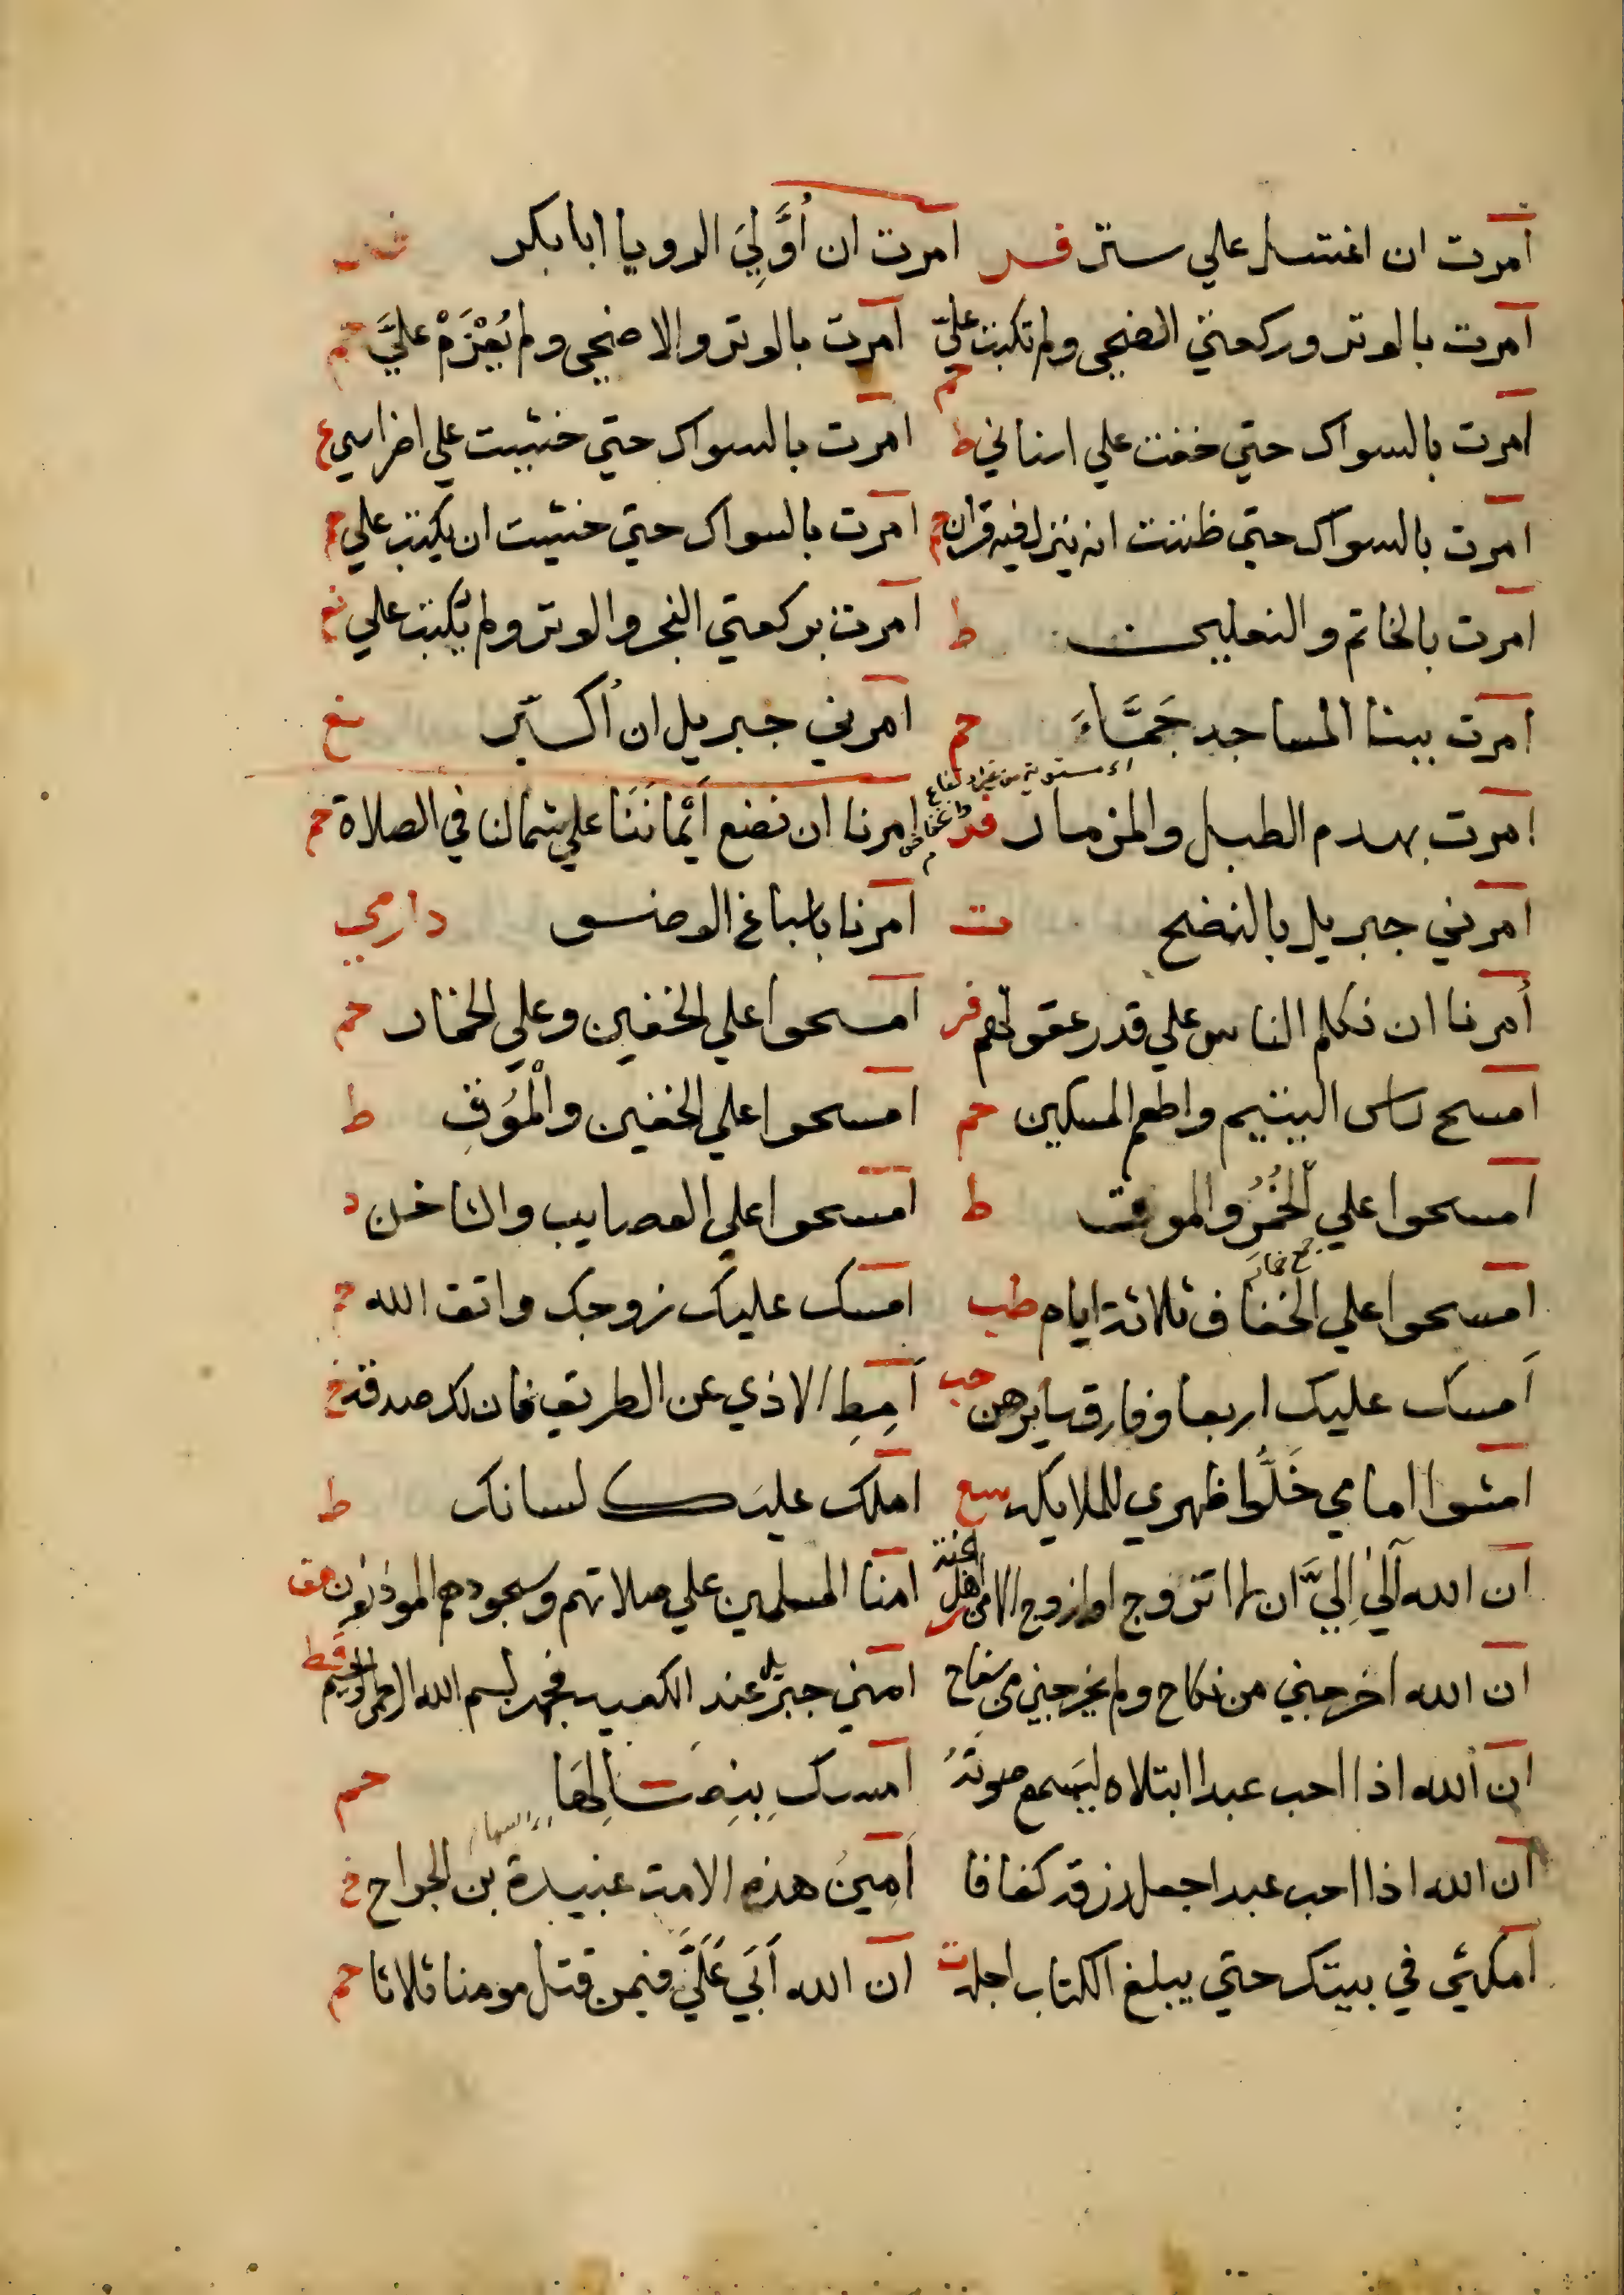 امرت ان اغتسل علي ستر فر امرت ان أُوَّلِيَ الرويا ابا بكر
امرت بالوتر وركعتي الضحي ولم تكتب عليّ حم امرت بالوتر والاضحي ولم يُعْزَمْ عليَّ حم
امرت بالسواك حتي خفت علي اسناني ط امرت بالسواك حتي خشيت علي اضراسي ع
امرت بالسواك حتي ظننت انه ينزل فيه قران حم امرت بالسواك حتي خشيت ان يكتب علي حم
امرت بالخاتم والنعلين ط امرت بركعتي الفجر والوتر ولم يكتب علي نع
امرت ببنا المساجد جَمَّاءَ حم امرني جبريل ان أكبّر نع
اي مستوية من غير ارتفاع
امرت بهدم الطبل والمزمار فر امرنا ان نضع أَيْمانَنَا علي شمالنا في الصلاة حم
امرني جبريل بالنضح ت امرنا باسباغ الوضو دارمي
أمرنا ان نكلم الناس علي قدر عقولهم فر امسحوا علي الخفين وعلي الخمار حم
امسح راس اليتيم واطعم المسكين حم امسحوا علي الخفين والْمُوَقِ ط
امسحوا علي الْخُمُرِ والموق ط امسحوا علي العصايب والتساخن د
جمع خمار
امسحوا علي الخفاف ثلاثة ايام طب امسك عليك زوجك واتق الله خ
أمسك عليك اربعا وفارق سايرهن حب أَمِطِ الاذي عن الطريق فان لك صدقة خ
امشوا امامي خَلُّوا ظهري للملايكة سع املك عليك لسانك ط
ان الله آلي اِليَّ ان لا اتزوج او ازوج الا من اهل الجنة امنا المسلمين علي صلاتهم وسجودهم الموذنون هق
ان الله اخرجني من نكاح ولم يخرجني من سفاح امني جبريل عند الكعبة فجهر بسم الله الرحمن الرحيم قط
ان الله اذا احب عبدا ابتلاه ليسمع صوتَهُ امسك بنصالها حم
اي السهام
ان الله اذا احب عبدا جعل رزقه كفافا أمينُ هذه الامة عبيدة بن الجراح خ
امكثي في بيتك حتي يبلغ الكتاب اجله ت ان الله أَبَي عَلَيَّ فيمن قتل مومنا ثلاثا حم